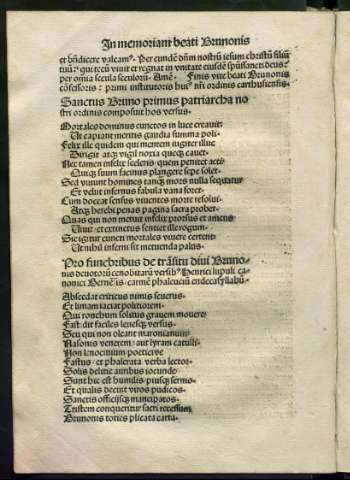 In memoriam beati Brunonis
et bñdicere valeamꝰ. Per eundẽ dñm nostrũ iesum christũ filiũ
tuũ: qui tecũ viuit et regnat in vnitate eiusdẽ spũssancti deus:
per omnia secula seculorũ. Amẽ. Finis vite beati Brunonis
cõfessoris: primi institutoris huiꝰ nr̃i ordinis carthusiensis.
Sanctus Bruno primus patriarcha no
stri ordinis composuit hos versus.
Mortales dominus cunctos in luce creauit:
Ut capiant meritis gaudia summa poli.
Felix ille quidem qui mentem iugiter illuc
Dirigit atqꝫ vigil noxia queqꝫ cauet.
Nec tamen infelix sceleris quem penitet acti
Quiqꝫ suum facinus plangere sepe solet.
Sed viuunt homines tanqꝫ mors nulla sequatur
Et velut infernus fabula vana foret.
Cum doceat sensus viuentes morte resolui.
Atqꝫ herebi penas pagina sacra probet.
Quas qui non metuit infelix prorsus et amens
Uiuit et extinctus sentiet ille rogum.
Sic igitur cuncti mortales viuere certent:
Ut nihil inferni sit metuenda palus.
Pro funebribus de trãsitu diui Bruno-
nis deuotorũ cenobitarũ versibꝰ Henrici lupuli ca-
nonici Bernẽsis: carmẽ phaleuciũ endecasyllabũ.
Abscedat criticus nimis seuerus.
Et limam iaciat politiorem.
Qui ronchum solitus grauem mouere
Fastidit faciles leuesqꝫ versus.
Seu qui non oleant maronianum
Nasonis venerem: aut lyram catulli.
Non lenocinium poetice ve
Fastus: et phalerata verba lector.
Solis delitie auribus iocunde.
Sunt hic: est humilis piusqꝫ sermo.
Et qualis decuit viros pudicos.
Sanctis officijsqꝫ mancipatos.
Tristem conqueritur sacri recessum
Brunonis toties plicata carta.